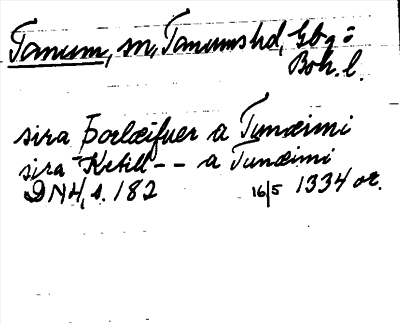 Tanum, sn, Tanums hd, Gbg o
Boh. l.
sira Þorlæifuer a Tunæimi
sira Ketill -- a Tunæimi
DN4, s. 182 16/5 1334 or.